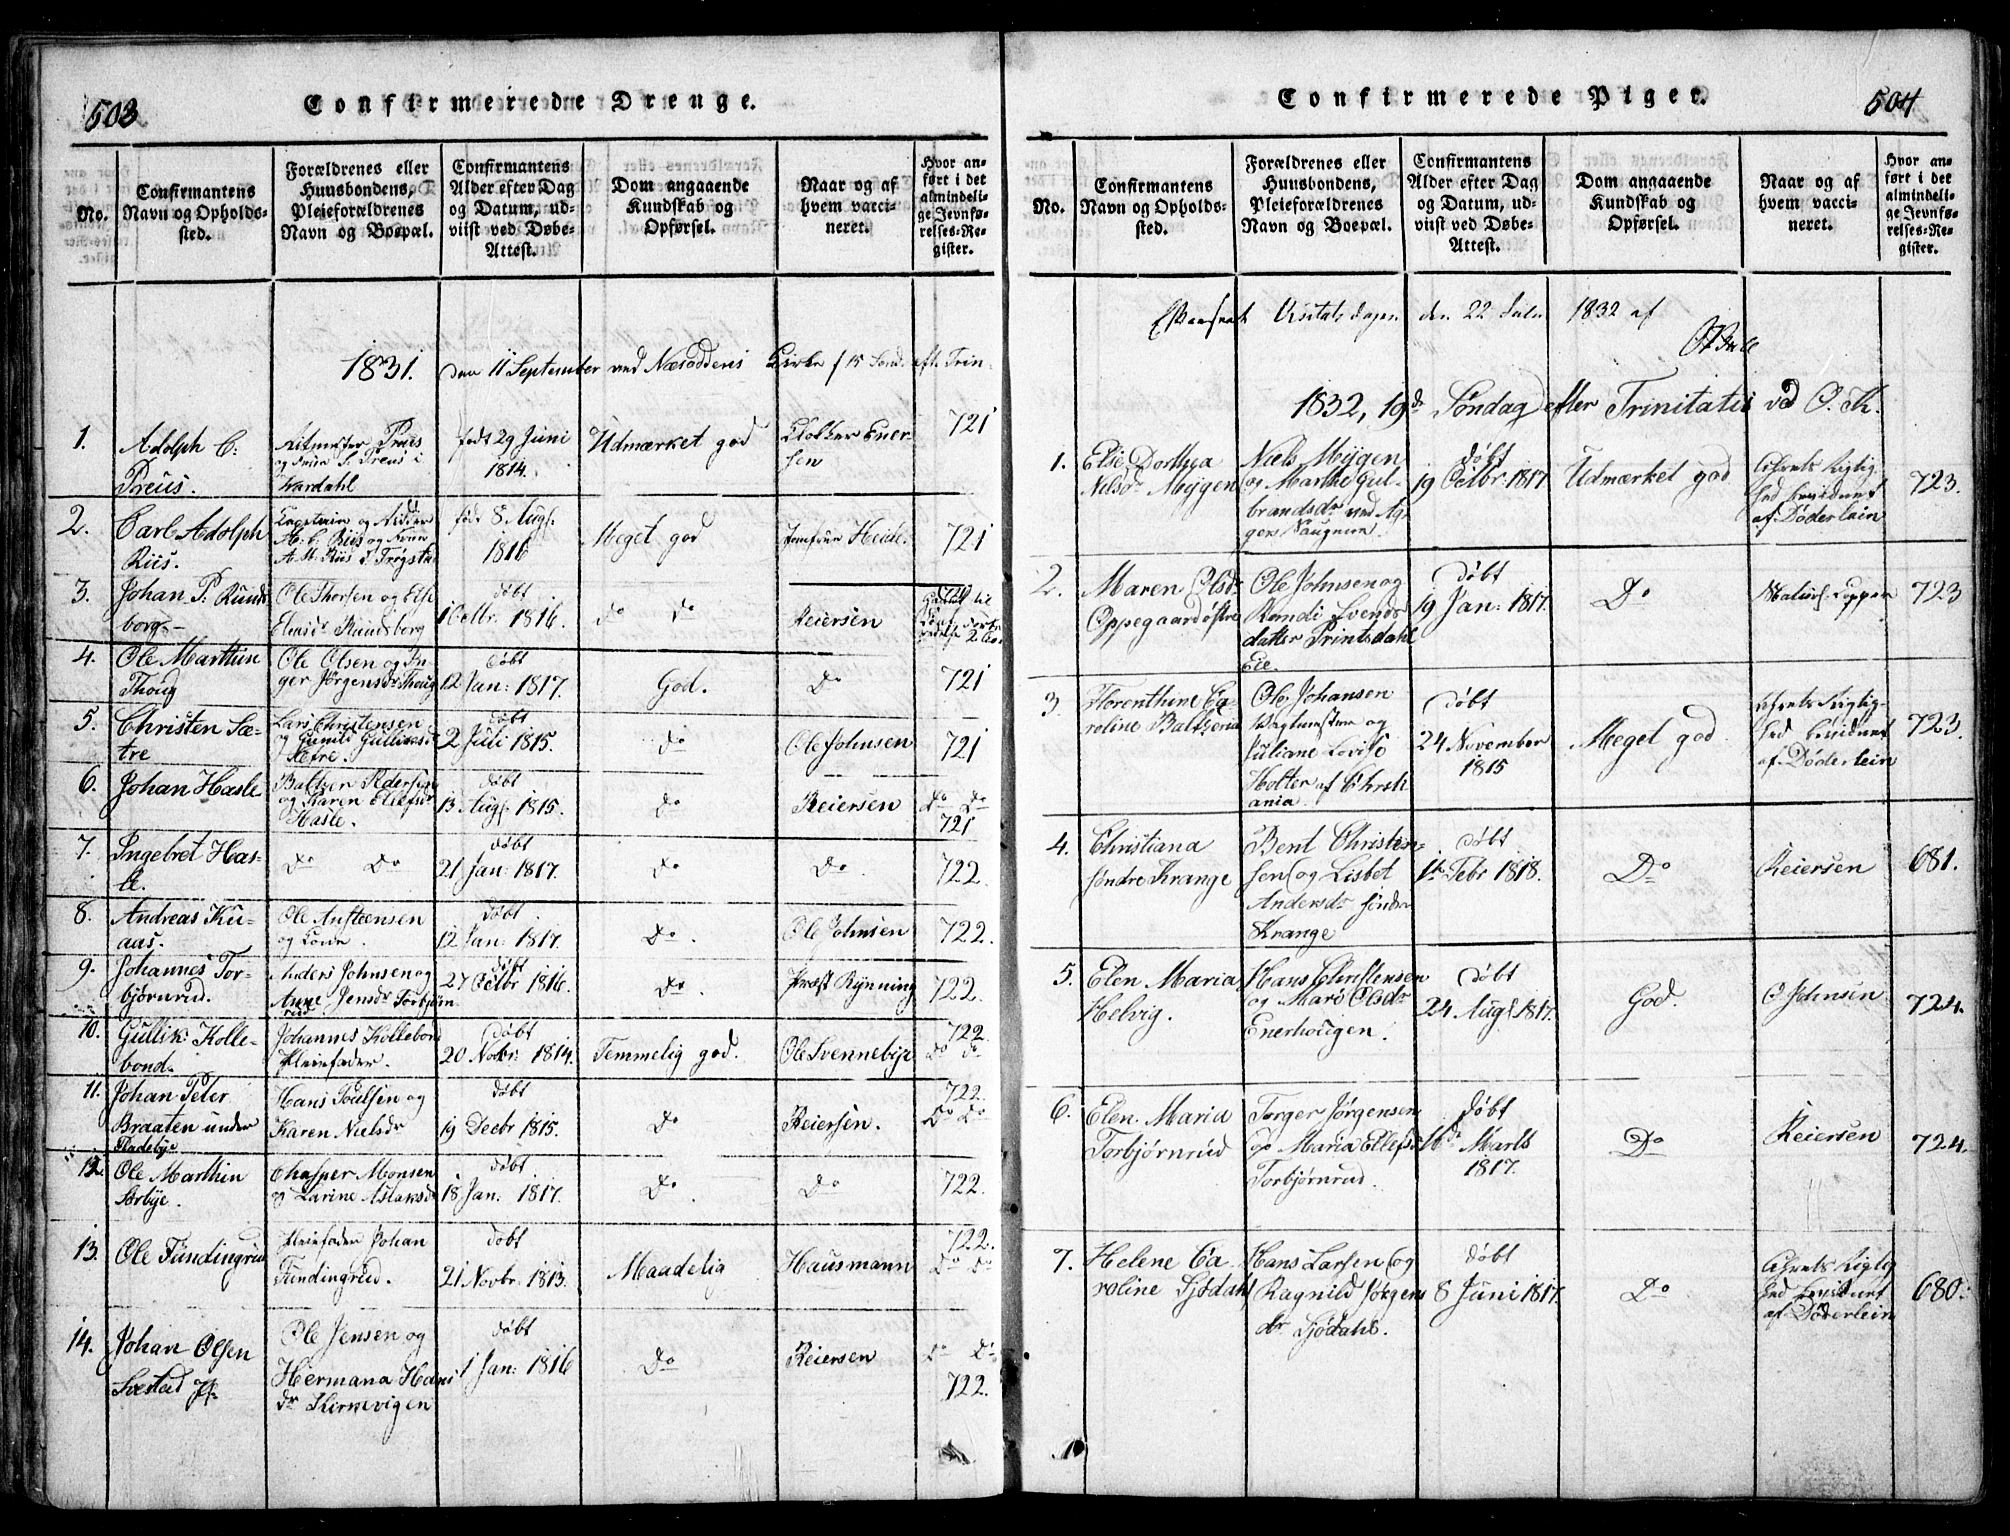 503
Confirmerede Drenge.
No.
Confirmantens Navn og Opholds-sted.
Forældrenes eller Huusbondens, Pleieforældrenes Navn og Boepæl.
Confirmantens Alder efter Dag og Datum, ud-viist ved Døbe-Attest.
Dom angaaende Kundskab og Opførsel.
Naar og af hvem vacci-neret.
Hvor an-ført i det almindeli-ge Jevnfø-relses-Re-gister.
1831. den 11 September ved Næsoddens Kirke / 15 Sønd. eft. Trin-
1.
Adolph C:
Preus.
Ritmester Preus
og Frue S. Preus i
Wardahl
født 29 Juni
1814.
Udmærket god
Klokker Ener-
sen
721
2.
Carl Adolph
Riis.
Capitain og Ridder
H. C. Riis og Frue
A. M. Riis i Trøgstad
født 8 Augs.
1816
Meget god
Jomfrue Heide.
721
3.
Johan P. Runds
borg.-
Ole Thorsen og Else
Elmsdr Rundsborg
døbt
1 Octbr. 1816.
Do Do
Reiersen
720
4.
Ole Marthin
Thoug
Ole Olsen og In-
ger Jørgensdr Thoug
døbt
12 Jan: 1817.
God.
Do
721
5.
Christen Sæ-
tre
Lars Christensen
og Gunild Gulliksdr
Sætre.
døbt
2 Juli 1815.
Do
Ole Johnsen
721
6.
Johan Hasle
Baltzer Pedersen
og Karen Ellefsdr
Hasle.
døbt
13 Augs. 1815.
Do
Reiersen
Do Do
721
7.
Ingebret Has-
le.
Do Do
døbt
21 Jan: 1817.
Do
Do
722.
8.
Andreas Ku-
aas.
Ole Anstensen
og Kone.
døbt
12 Jan: 1817.
Do.
Ole Johnsen
722.
9.
Johannes Tor-
bjørnrud.
Anders Johnsen og
Anne Jensdr Torbjørn
rud
døbt
27 Octbr 1816.
Do.
Præst Rynning
722.
10.
Gullik Kolle-
bond.
Johannes Kollebond
Pleiefader.
døbt
20 Novbr: 1814.
Temmelig god.
Ole Svennebye
722.
Do Do
11.
Johan Peter
Braaten under
Fladebye
Hans Poulsen og
Karen Nielsdr
døbt
19 Decbr 1815.
Do
Reiersen.
722.
Do Do
12.
Ole Marthin
Sørbye.
Chasper Monsen
og Larine Aslaksdr
døbt
18 Jan: 1817.
Do
Do
722.
13.
Ole Fundingrud
Pleiefader Johan
Fundingrud.
døbt
21 Novbr. 1813.
Maadelig
Hausmann
722.
Do Do
14.
Johan Olsen
Svestad Pl.
Ole Jensen og
Hermana Hans
dr Kirkevigen
døbt
1 Jan: 1816
Do
Reiersen
Do Do
722.
Confirmerede Piger.
504
No.
Confirmantens Navn og Opholds-sted.
Forældrenes eller Huusbondens, Pleieforældrenes Navn og Boepæl.
Confirmantens Alder efter Dag og Datum, ud-viist ved Døbe-Attest.
Dom angaaende Kundskab og Opførsel.
Naar og af hvem vacci-neret.
Hvor an-ført i det almindeli-ge Jevnfø-relses-Re-gister.
Efterseet Visitatsdagen den 22 Julii 1832 af
1832, 19de Søndag efter Trinitatis ved O. K.
1.
Else Dorthea
Nilsdr Mÿgen
Niels Mÿgen
og Marthe Gul-
brandsdr ved Ag-
gers
døbt
19 Octbr: 1817.
Udmærket god
Attests Rigtig-
hed bevidnet
af Døderlein
723.
2.
Maren Olsdr
Oppegaard østre
Ole Johnsen og
Randi Svends
datter Printsdahl
Eie.
døbt
19 Jan: 1817.
Do
Naturl. Kopper
723
3.
Florenthine Ca
roline Baltzeria
Ole Johansen
Vagtmester og
Juliane Lovise
Holter af Christi
ania.
døbt
24 November
1815
Meget god
Attests Rigtig-
hed bevidnet
af Døderlein
723.
4.
Christiana
søndre Krange
Bent Christen-
sen og Lisbet
Andersdr søndre
Krange
døbt
1te Febr 1818.
Do
Reiersen
681.
5.
Elen Maria
Helvig.
Hans Christensen
og Mari Olsdr
Enerhougen.
døbt
24 Augs 1817.
God.
O Johnsen
724.
6.
Elen Maria
Torbjørnrud
Torger Jørgensen
og Maria Ellefsdr
Torbjørnrud.
døbt
16de Marts
1817.
Do
Reiersen
724.
7.
Helene Ca
roline Sjødahl
Hans Larsen og
Ragnild Jørgens
dr Sjødahl.
døbt
8 Juni 1817.
Do
Attests Rigtig
hed bevidnet
af Døderlein
680.